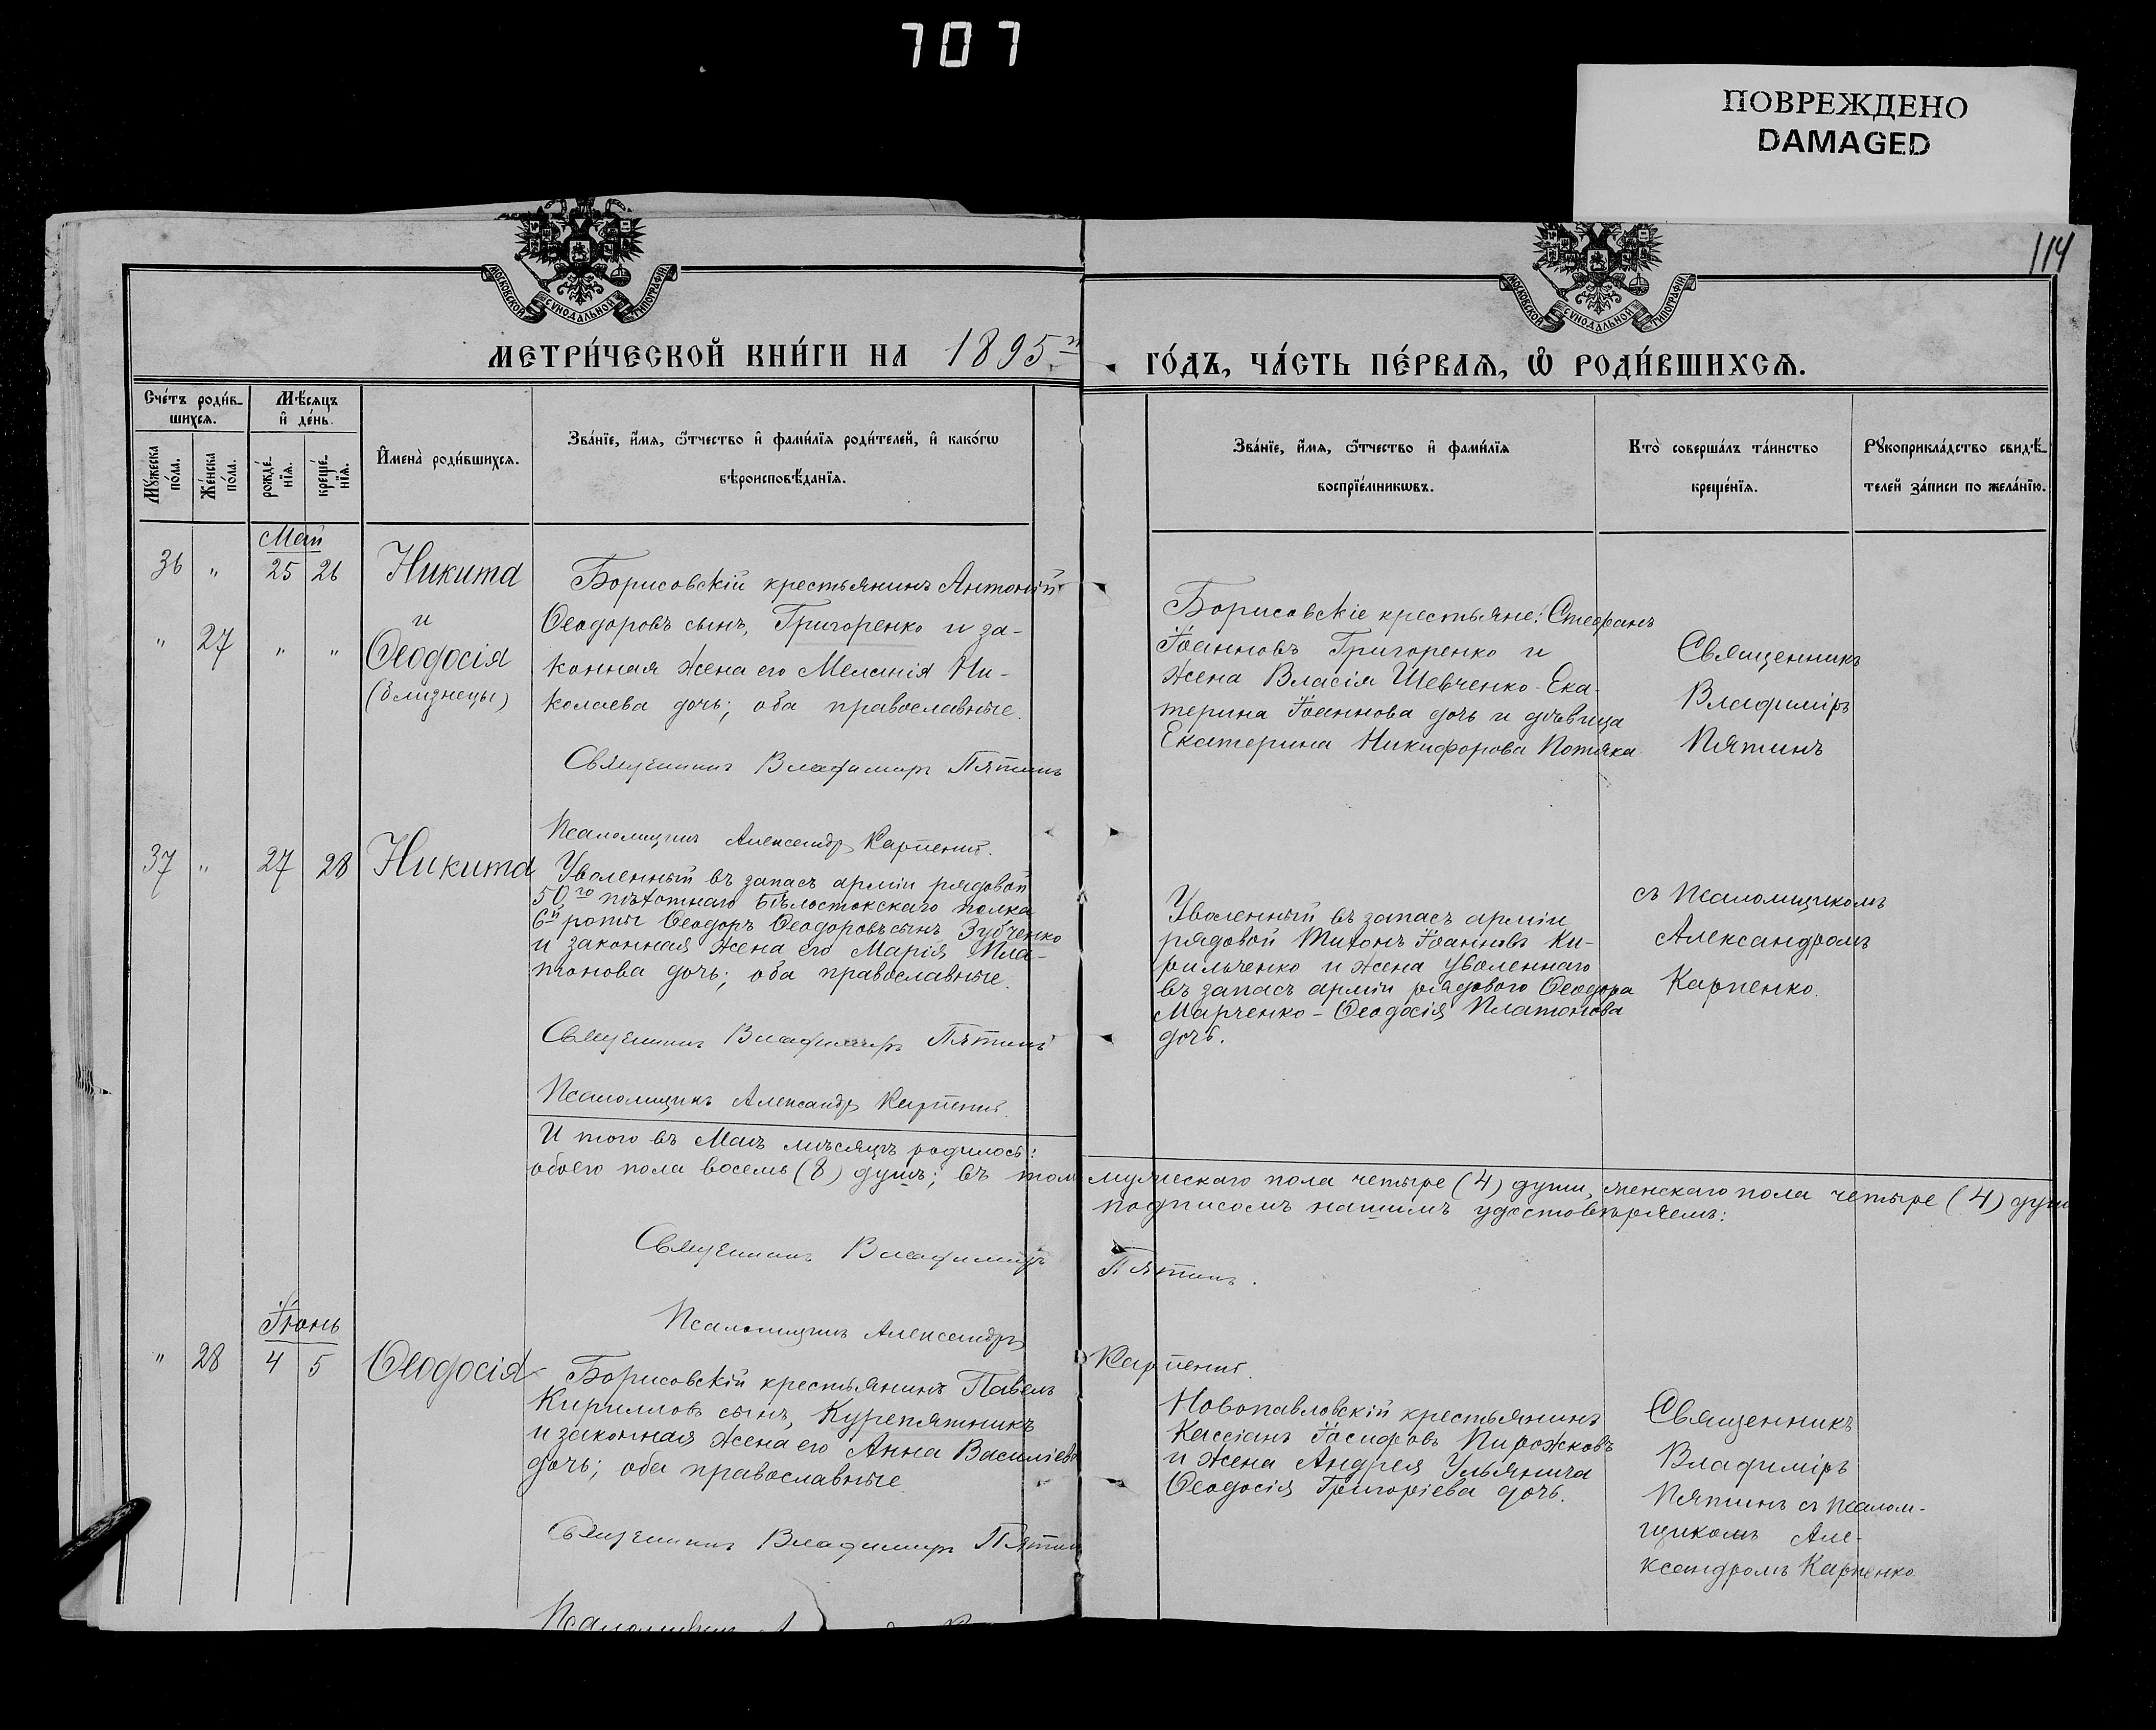 707
ПОВРЕЖДЕНО
DAMAGED
114
МОСКОВСКОЙ СѴНОДАЛЬНОЙ ТИПОГРАФІИ
МОСКОВСКОЙ СѴНОДАЛЬНОЙ ТИПОГРАФІИ
МЕТРИ́ЧЕСКОЙ КНИ́ГИ НА 1895й
ГО́ДЪ, ЧА́СТЬ ПЕ́РВАѦ, Ѡ҆ РОДИ́ВШИХСѦ.
Сче́тъ роди́в-
шихсѧ.
Мѣ́сѧцъ
и҆ де́нь.
Мꙋ́жеска
по́ла.
Же́нска
по́ла.
рожде́-
нїѧ.
креще́-
нїѧ.
И҆мена̀ роди́вшихсѧ.
Зва́нїе, и҆́мѧ, ѻ҆́тчество и҆ фами́лїѧ роди́телей, и҆ како́гѡ
вѣроисповѣ́данїѧ.
Зва́нїе, и҆́мѧ, ѻ҆́тчество и҆ фами́лїѧ
воспрїе́мникѡвъ.
Кто̀ соверша́лъ та́инство
креще́нїѧ.
Рꙋкоприкла́дство свидѣ́-
телей за́писи по жела́нїю.
Май
36 " 25 26 Никита
и
" 27 " " Ѳеодосія
(близнецы)
Борисовскій крестьянинъ Антоній
Ѳеодоровъ сынъ, Григоренко и за-
конная жена его Меланія Ни-
колаева дочь; оба православные.
Священникъ Владимиръ Пятинъ
Псаломщикъ Александръ Карпенко.
Борисовскіе крестьяне: Стефанъ
Іоанновъ Григоренко и
жена Власія Шевченко-Ека-
терина Іоаннова дочь и дѣвица
Екатерина Никифорова Потяка
Священникъ
Владиміръ
Пятинъ
37 " 27 28 Никита
Уволенный въ запасъ арміи рядовой
50го пѣхотнаго Бѣлостокскаго полка
6й роты Ѳеодоръ Ѳеодоровъ сынъ Зубченко
и законная жена его Марія Пла-
тонова дочь; оба православные.
Священникъ Владимиръ Пятинъ
Псаломщикъ Александръ Карпенко.
Уволенный въ запасъ арміи
рядовой Тихонъ Іоанновъ Ки-
рильченко и жена уволеннаго
въ запасъ арміи рядового Ѳеодора
Марченко-Ѳеодосія Платонова
дочь.
съ Псаломщикомъ
Александромъ
Карпенко.
И того въ Маѣ мѣсяцѣ родилось:
обоего пола восемь (8) душъ; въ том мужескаго пола четыре (4) души, женскаго пола четыре (4) души
подписомъ нашимъ удостовѣряемъ:
Священникъ Владимиръ Пятинъ.
Псаломщикъ Александръ Карпенко.
Іюнь
" 28 4 5 Ѳеодосія
Борисовскій крестьянинъ Павелъ
Кирилловъ сынъ, Курепятникъ
и законная жена его Анна Василіева
дочь; оба православные.
Священникъ Владимиръ Пятин
Псаломщикъ
Новопавловскій крестьянинъ
Кассіанъ Іосифовъ Пирожковъ
и жена Андрея Ульянича
Ѳеодосія Григоріева дочь.
Священникъ
Владиміръ
Пятинъ съ псалом-
щикомъ Але-
ксандромъ Карпенко